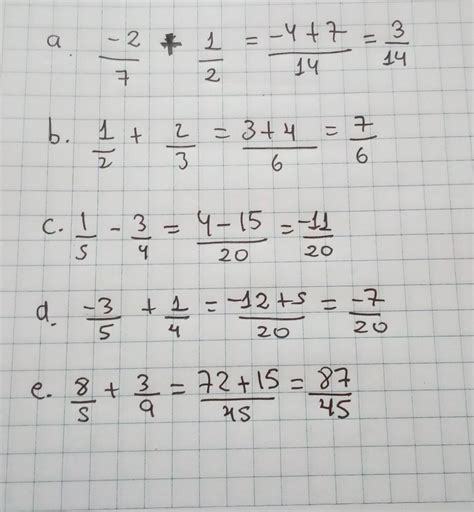 a. -2/7 + 1/2 = -4+7/14 = 3/14
b. 1/2 + 2/3 = 3+4/6 = 7/6
c. 1/5 - 3/4 = 4-15/20 = -11/20
d. -3/5 + 1/4 = -12+5/20 = -7/20
e. 8/5 + 3/9 = 72+15/45 = 87/45